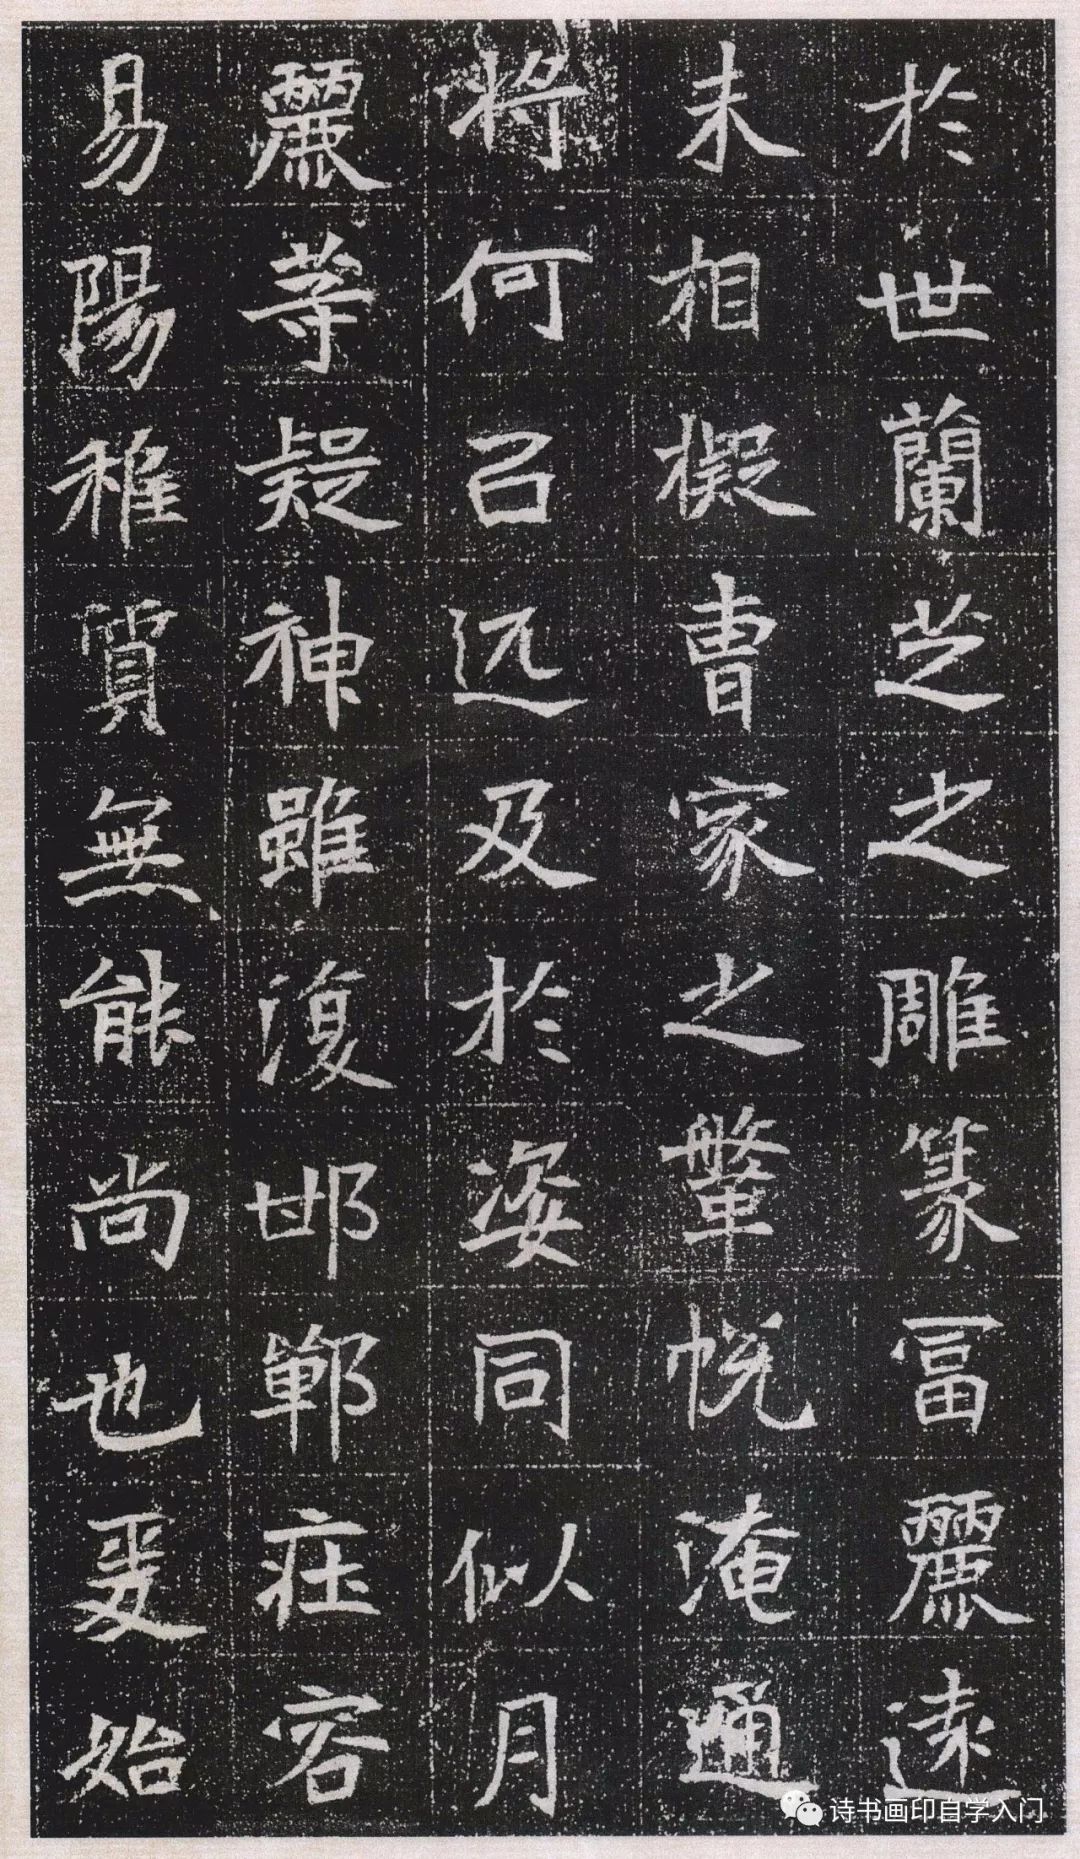 於世蘭芝之雕篆富麗速
未相擬曹家之鞶帨淹通
將何召远及於姿同似月
麗等疑神雖復邯鄲莊容
易陽稚質無能尚也爰始
诗书画印自学入门